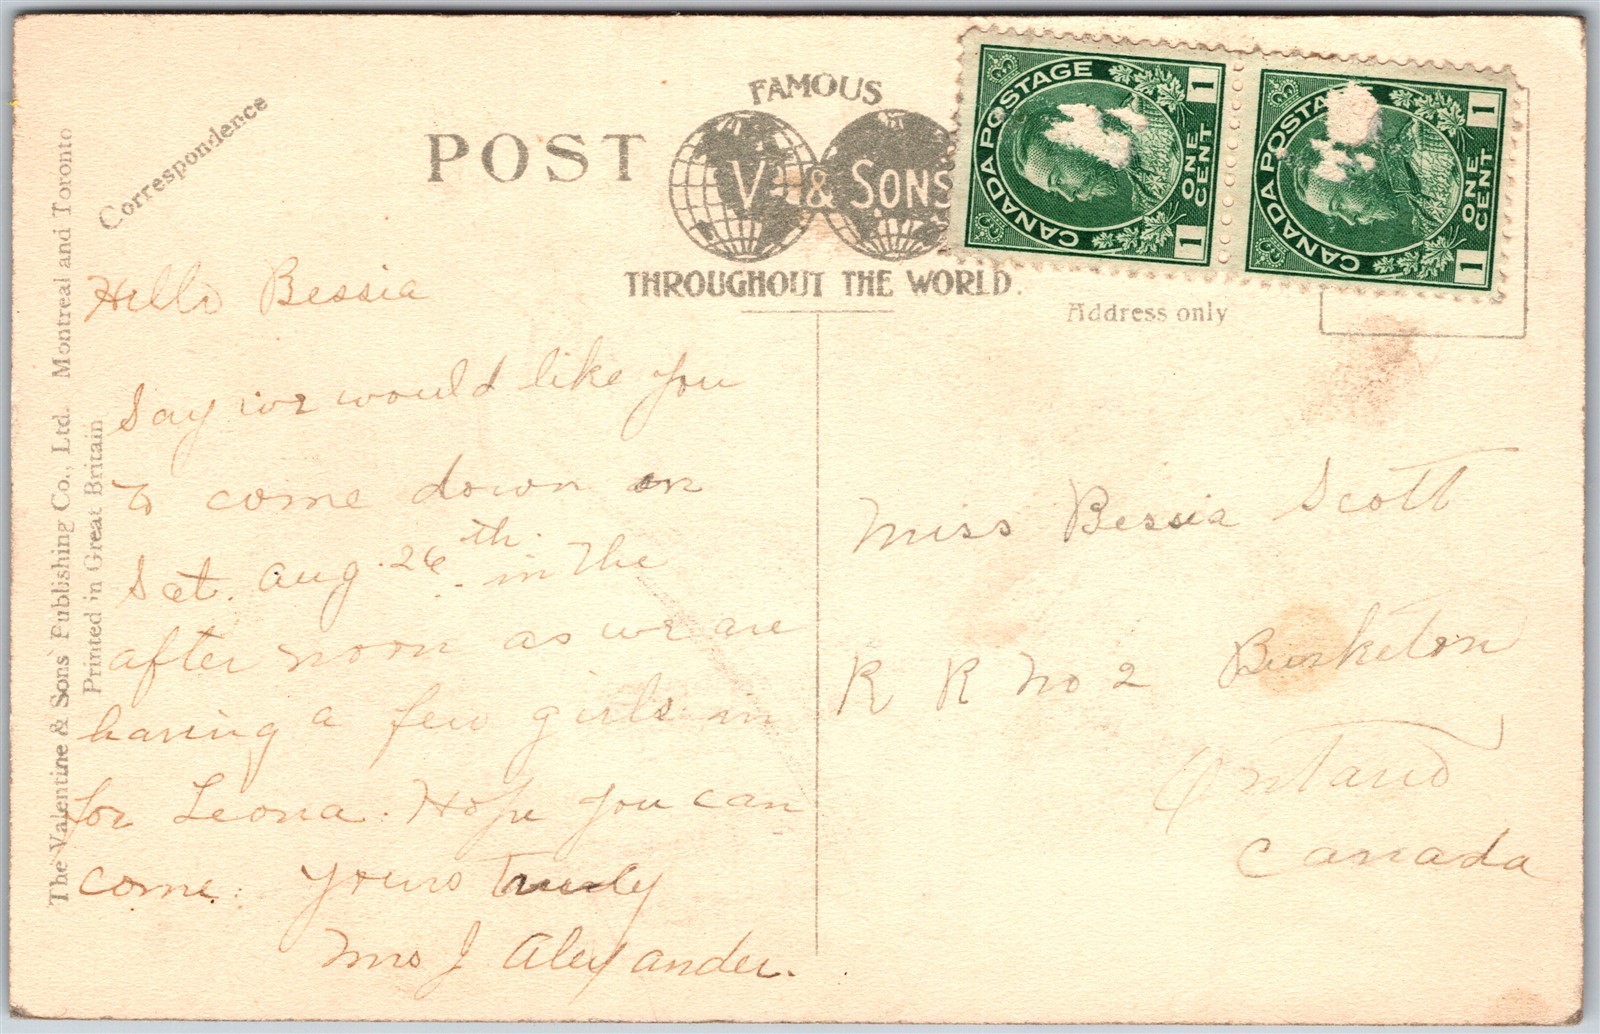 Correspondence
POST
FAMOUS
V & SONS
THROUGHOUT THE WORLD.
CANADA POSTAGE
ONE CENT
1 1
CANADA POSTA
ONE CENT
1 1
Address only
The Valentine & Sons' Publishing Co., Ltd. Montreal and Toronto
Printed in Great Britain
Hello Bessia
Say we would like you
to come down on
Sat. Aug. 26th. in the
after noon as we are
having a few girls in
for Leona. Hope you can
come. Yours Truly
Mrs J Alexander.
Miss Bessia Scott
R R No 2 Burketon
Ontario
Canada